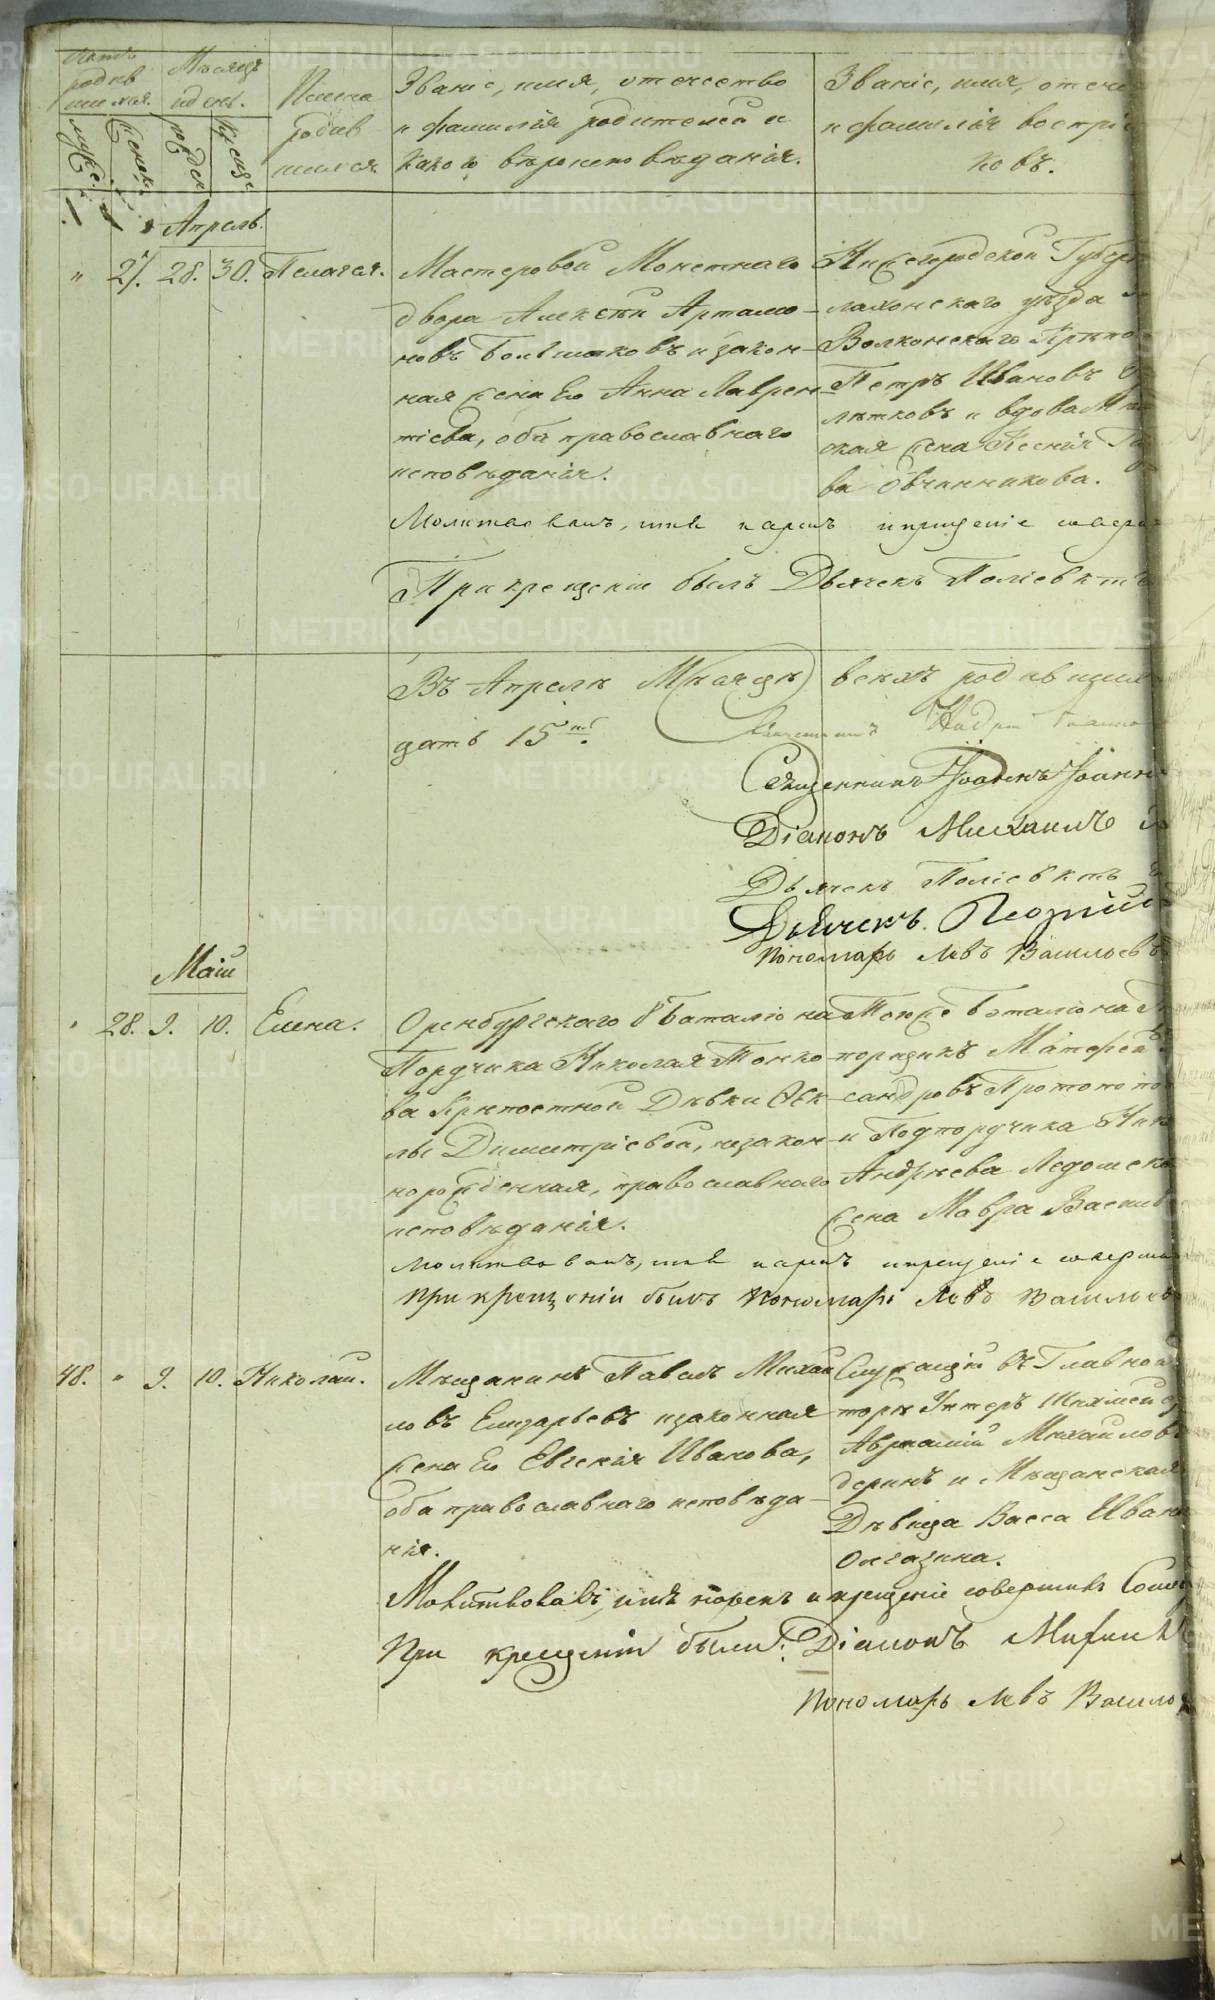 Счетъ родившихся.
Мѣсяцъ и день.
Имена родившихся
Званіе, имя, отечество
и фамилія родителей и
какого вѣроисповѣданія.
Званіе, имя, отече
и фамилія воспріе
ковъ.
муже.
женск.
рожден
креще.
Апрель.
" 27. 28. 30. Пелагея.
Мастеровой Монетнаго
двора Алексѣй Артамо-
новъ Большаковъ и закон-
ная жена Его Анна Лаврен-
тіева, оба православнаго
исповѣданія.
Нижегородской Губерн
лахонскаго уѣзда
Волконскаго Крѣпо
Петръ Ивановъ
лѣтковъ и вдова М
ская жена Ксенія
ва Овчинникова.
Молитвовалъ, имя нарекъ и крещеніе соверш
При крещеніи былъ Дьячекъ Поліевктъ
Въ Апрелѣ Мѣсяцѣ всѣхъ родивших
цать 15ть.
Священникъ Іоаннъ Іоанн
Діаконъ Михаилъ
Дьячекъ Поліевктъ
Дьячекъ Георгій
Пономарь Левъ Васильевъ
Маій
" 28. 9. 10. Елена.
Оренбургскаго 8 Баталіона
Порутчика Николая Понко-
ва Крѣпостной Дѣвки Ѳек-
лы Димитріевой, незакон-
норожденная, православнаго
исповѣданія.
Тогоже Баталіона
порщикъ Матфей
сандровъ Протопопо
и Подпорутчика Ник
Андрѣева Ледомск
жена Мавра Васил
Молитвовалъ, имя нарекъ и крещеніе соверши
При крещеніи былъ Пономарь Левъ Васильев
48. " 9. 10. Николай.
Мѣщанинъ Павелъ Михай
ловъ Елизарьевъ и законная
жена Его Евгенія Иванова,
оба православнаго исповѣда-
нія.
Служащій въ Главной
торѣ Унтеръ Шихмейс
Авраамій Михайловъ
деринъ и Мѣщанская
Дѣвица Васса Иван
Онгазина.
Молитвовалъ, имя нарекъ и крещеніе совершилъ
При крещеніи были: Діаконъ Михаил
Пономарь Левъ Василь
METRIKI.GASO-URAL.RU